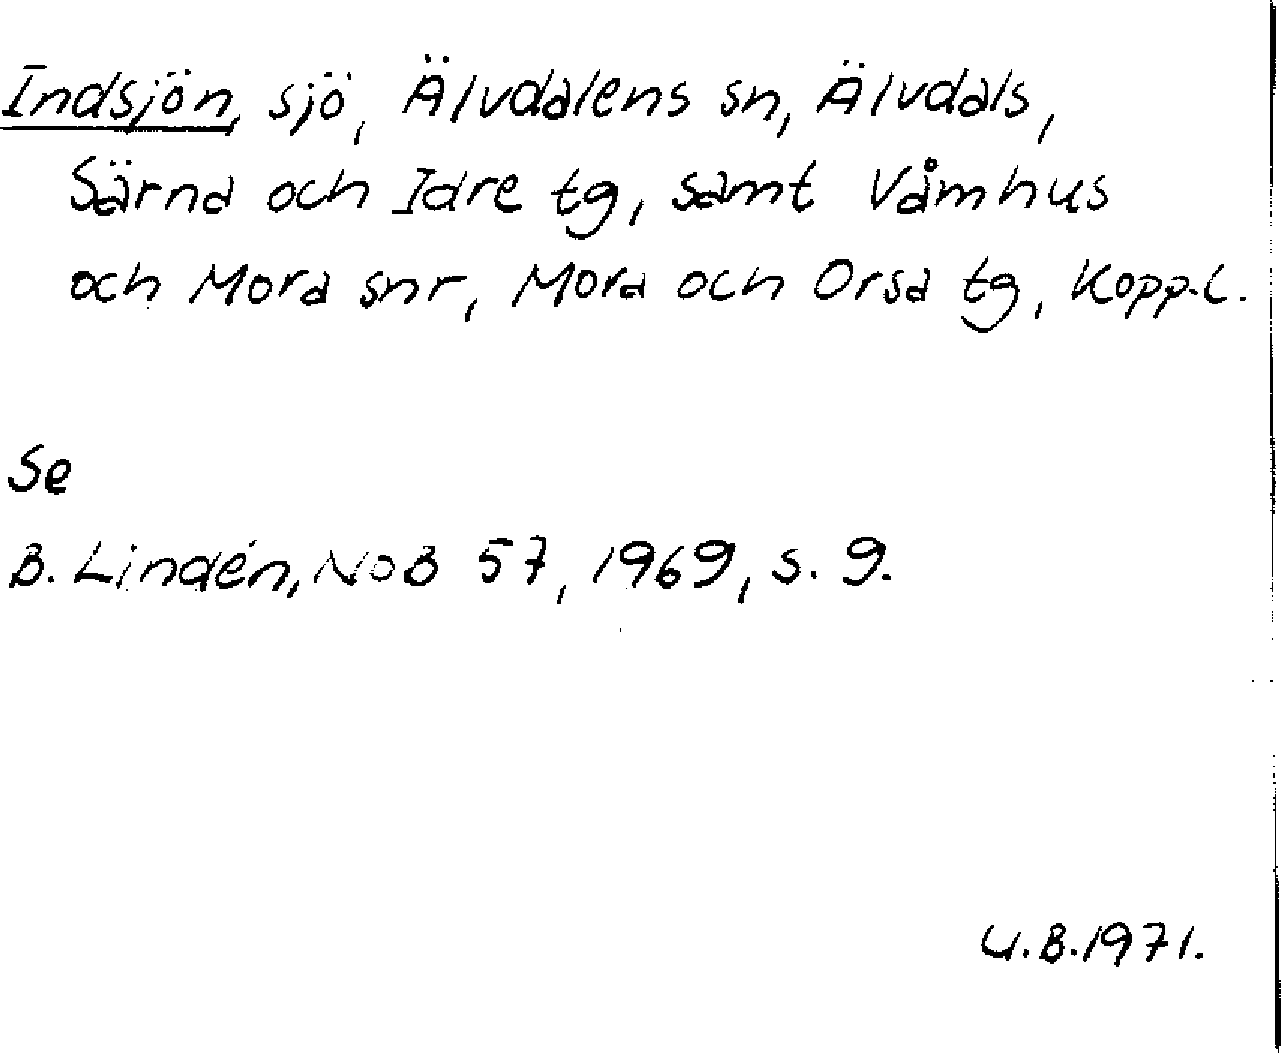 Indsjön, sjö, Älvdalens sn, Älvdals,
Särna och Idre tg, samt Våmhus
och Mora snr, Mora och Orsa tg, Kopp.l.
Se
B. Lindén, NoB 57, 1969, s. 9.
U.B.1971.